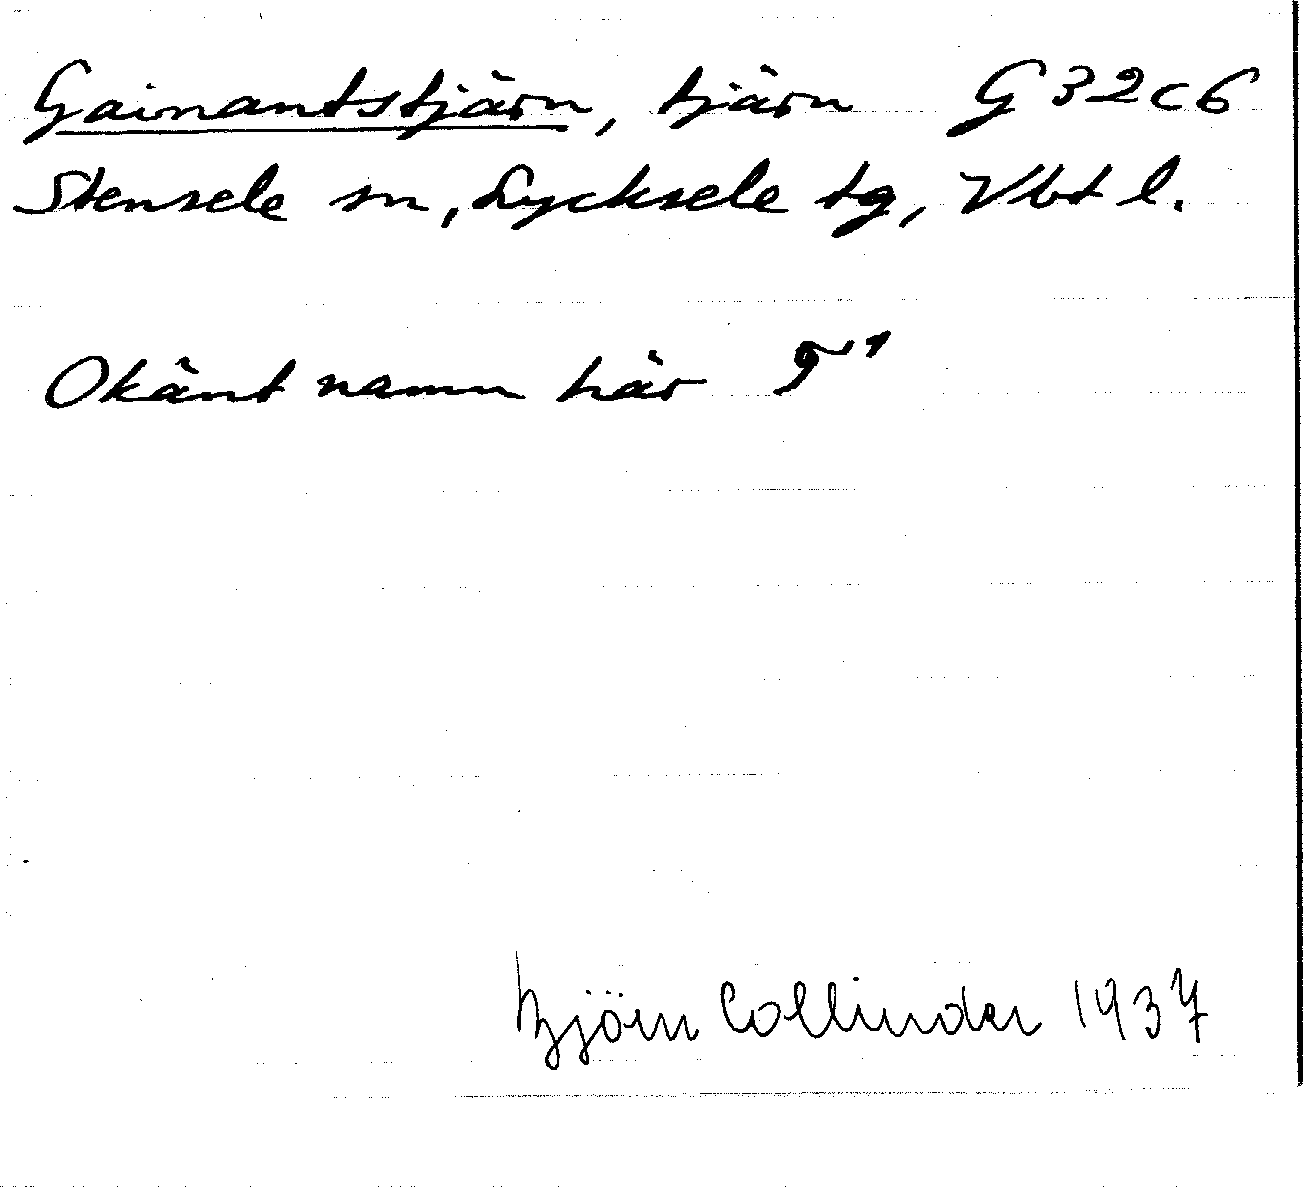 Gainantstjärn, tjärn G 32 c 6
Stensele sn, Lycksele tg, Vbt l.
Okänt namn här
Björn Collinder 1937